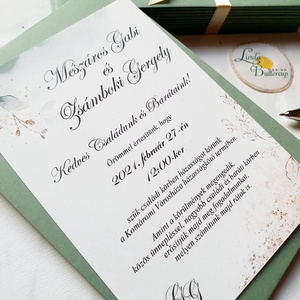 Mészáros Gabi
és
Zsámboki Gergely
Kedves Családunk és Barátaink!
Örömmel értesítünk, hogy
2021. február 27-én
12:00-kor
szűk családi körben házasságot kötünk
a Komáromi Városháza házasságkötő termében.
Amint a körülmények megengedik,
közös ünnepléssel, nagyobb családi és baráti körben
erősítjük majd meg fogadalmunkat,
melyen számítunk majd rátok is.
GG
Linda
Buttercup